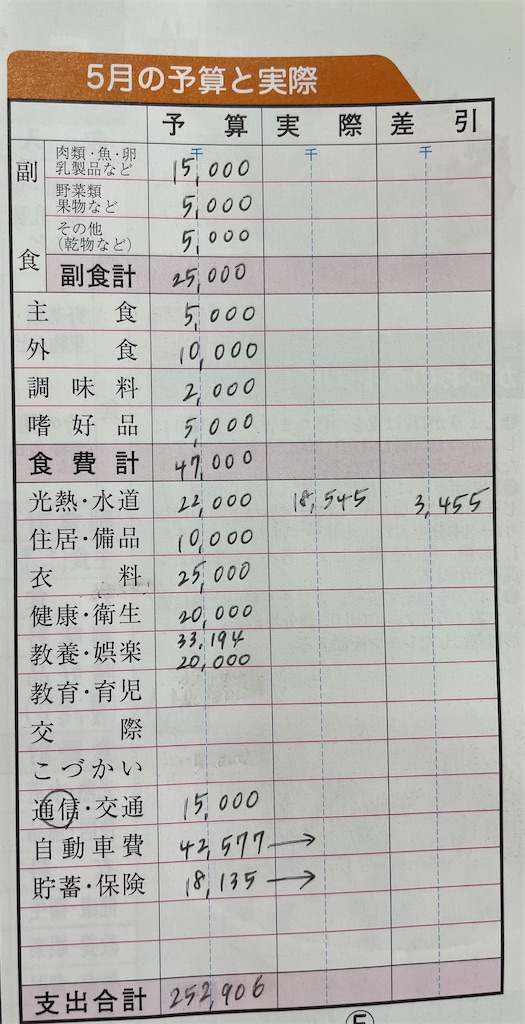 5月の予算と実際
予算 実際 差引
副食
肉類・魚・卵
乳製品など 千 15,000 千 千
野菜類
果物など 5,000
その他
(乾物など) 5,000
副食計 25,000
主食 5,000
外食 10,000
調味料 2,000
嗜好品 5,000
食費計 47,000
光熱・水道 22,000 18,545 3,455
住居・備品 10,000
衣料 25,000
健康・衛生 20,000
教養・娯楽 33,194
20,000
教育・育児
交際
こづかい
通信・交通 15,000
自動車費 42,577→
貯蓄・保険 18,135→
支出合計 252,906